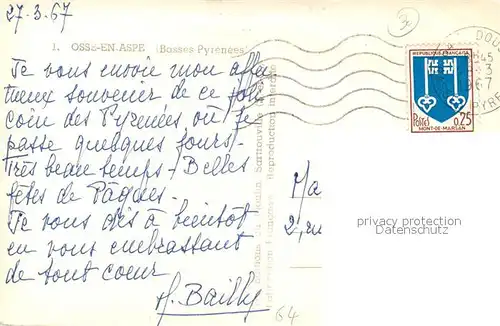 27-3.67
3
1. OSSE-EN-ASPE (Basses Pyrénées)
Je vous envoie mon affec
tueux souvenir de ce joli
coin des Pyrénées, où je
passe quelques jours-
Très beau temps - Belles
fêtes de Pâques-
Je vous dis à bientôt
en vous embrassant
de tout coeur
H. Bailly
64
M/a
2, ru
REPUBLIQUE FRANÇAISE
Postes 0,25
MONT-DE-MARSAN
Reproduction interdite
privacy protection
Datenschutz